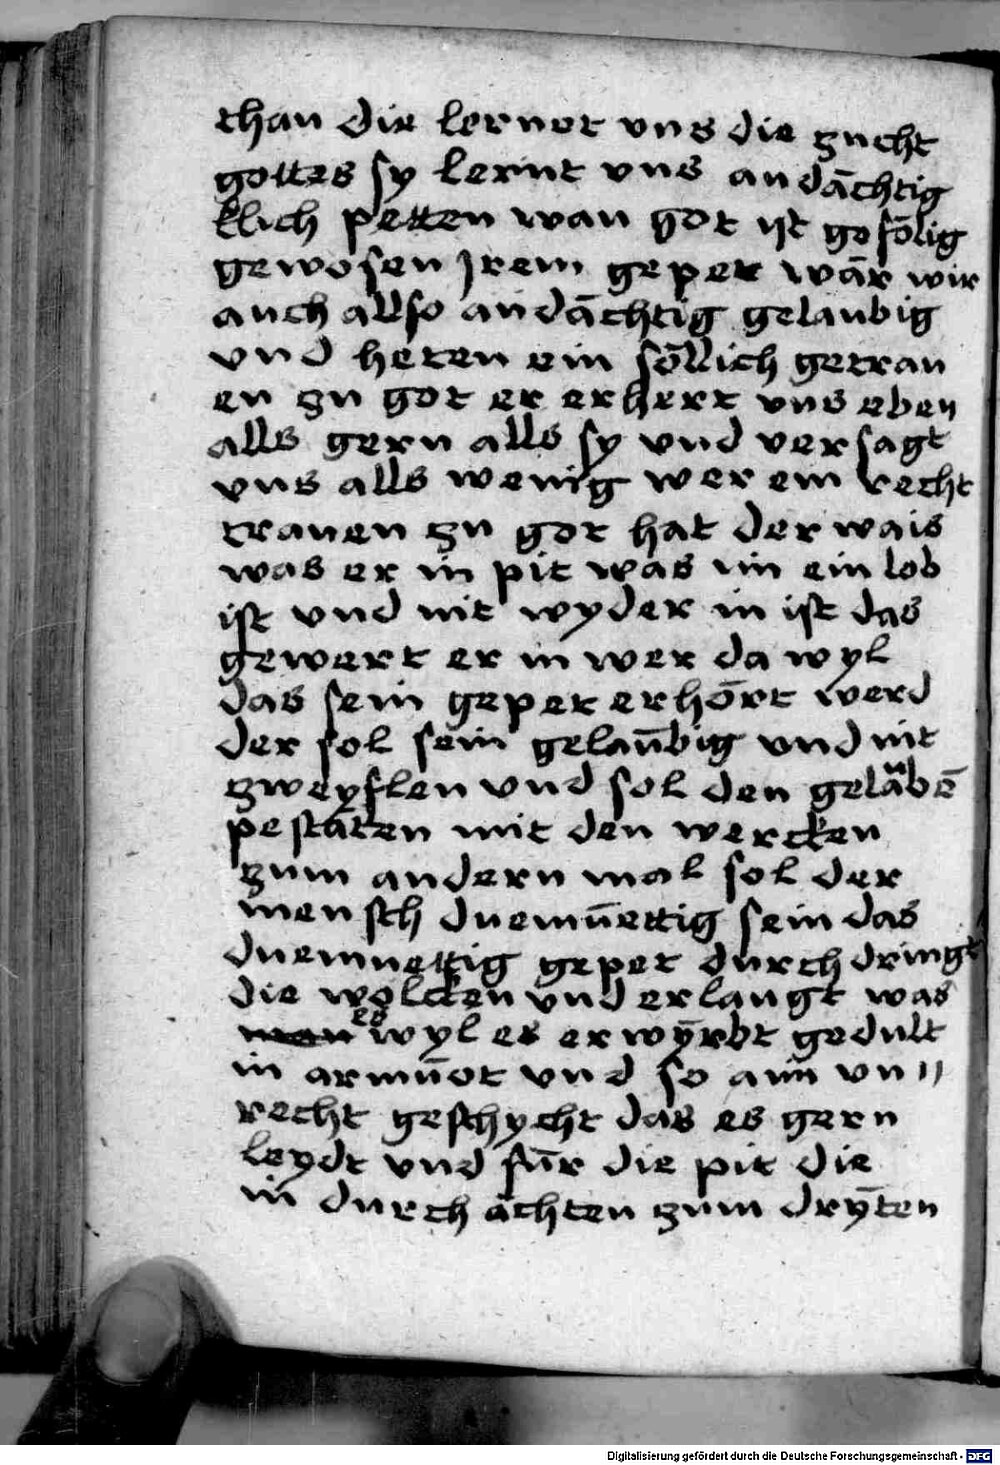 than die lernet vns die zucht
gottes sy lernt vns andāchtig
klich petten wan got ist gefōlig
gewesen Jrem gepet wār wir
auch allso andāchtig gelaubig
vnd heten ein sōllich getrau
en zu got er erhert vns eben
alls gern alls sy vnd versagt
vns alls wenig wer ein recht
trauen zu got hat der wais
was er in pit was im ein lob
ist vnd nit wyder in ist das
gewert er in wer da wyl
das sein gepet erhōrt werd
der sol sein gelaūbig vnd nit
zweyflen vnd sol den gelāubē
pestāten mit den wercken
zum andern mal sol der
mensch duemūettig sein das
duemuettig gepet durch dringt
die wolcken vnd erlangt was
man es wyl es erwȳrbt gedult
in armūet vnd so aim vn //
recht geschycht das es gern
leydt vnd fūr die pit die
in durch āchten zum drȳten
Digitalisierung gefördert durch die Deutsche Forschungsgemeinschaft - DFG